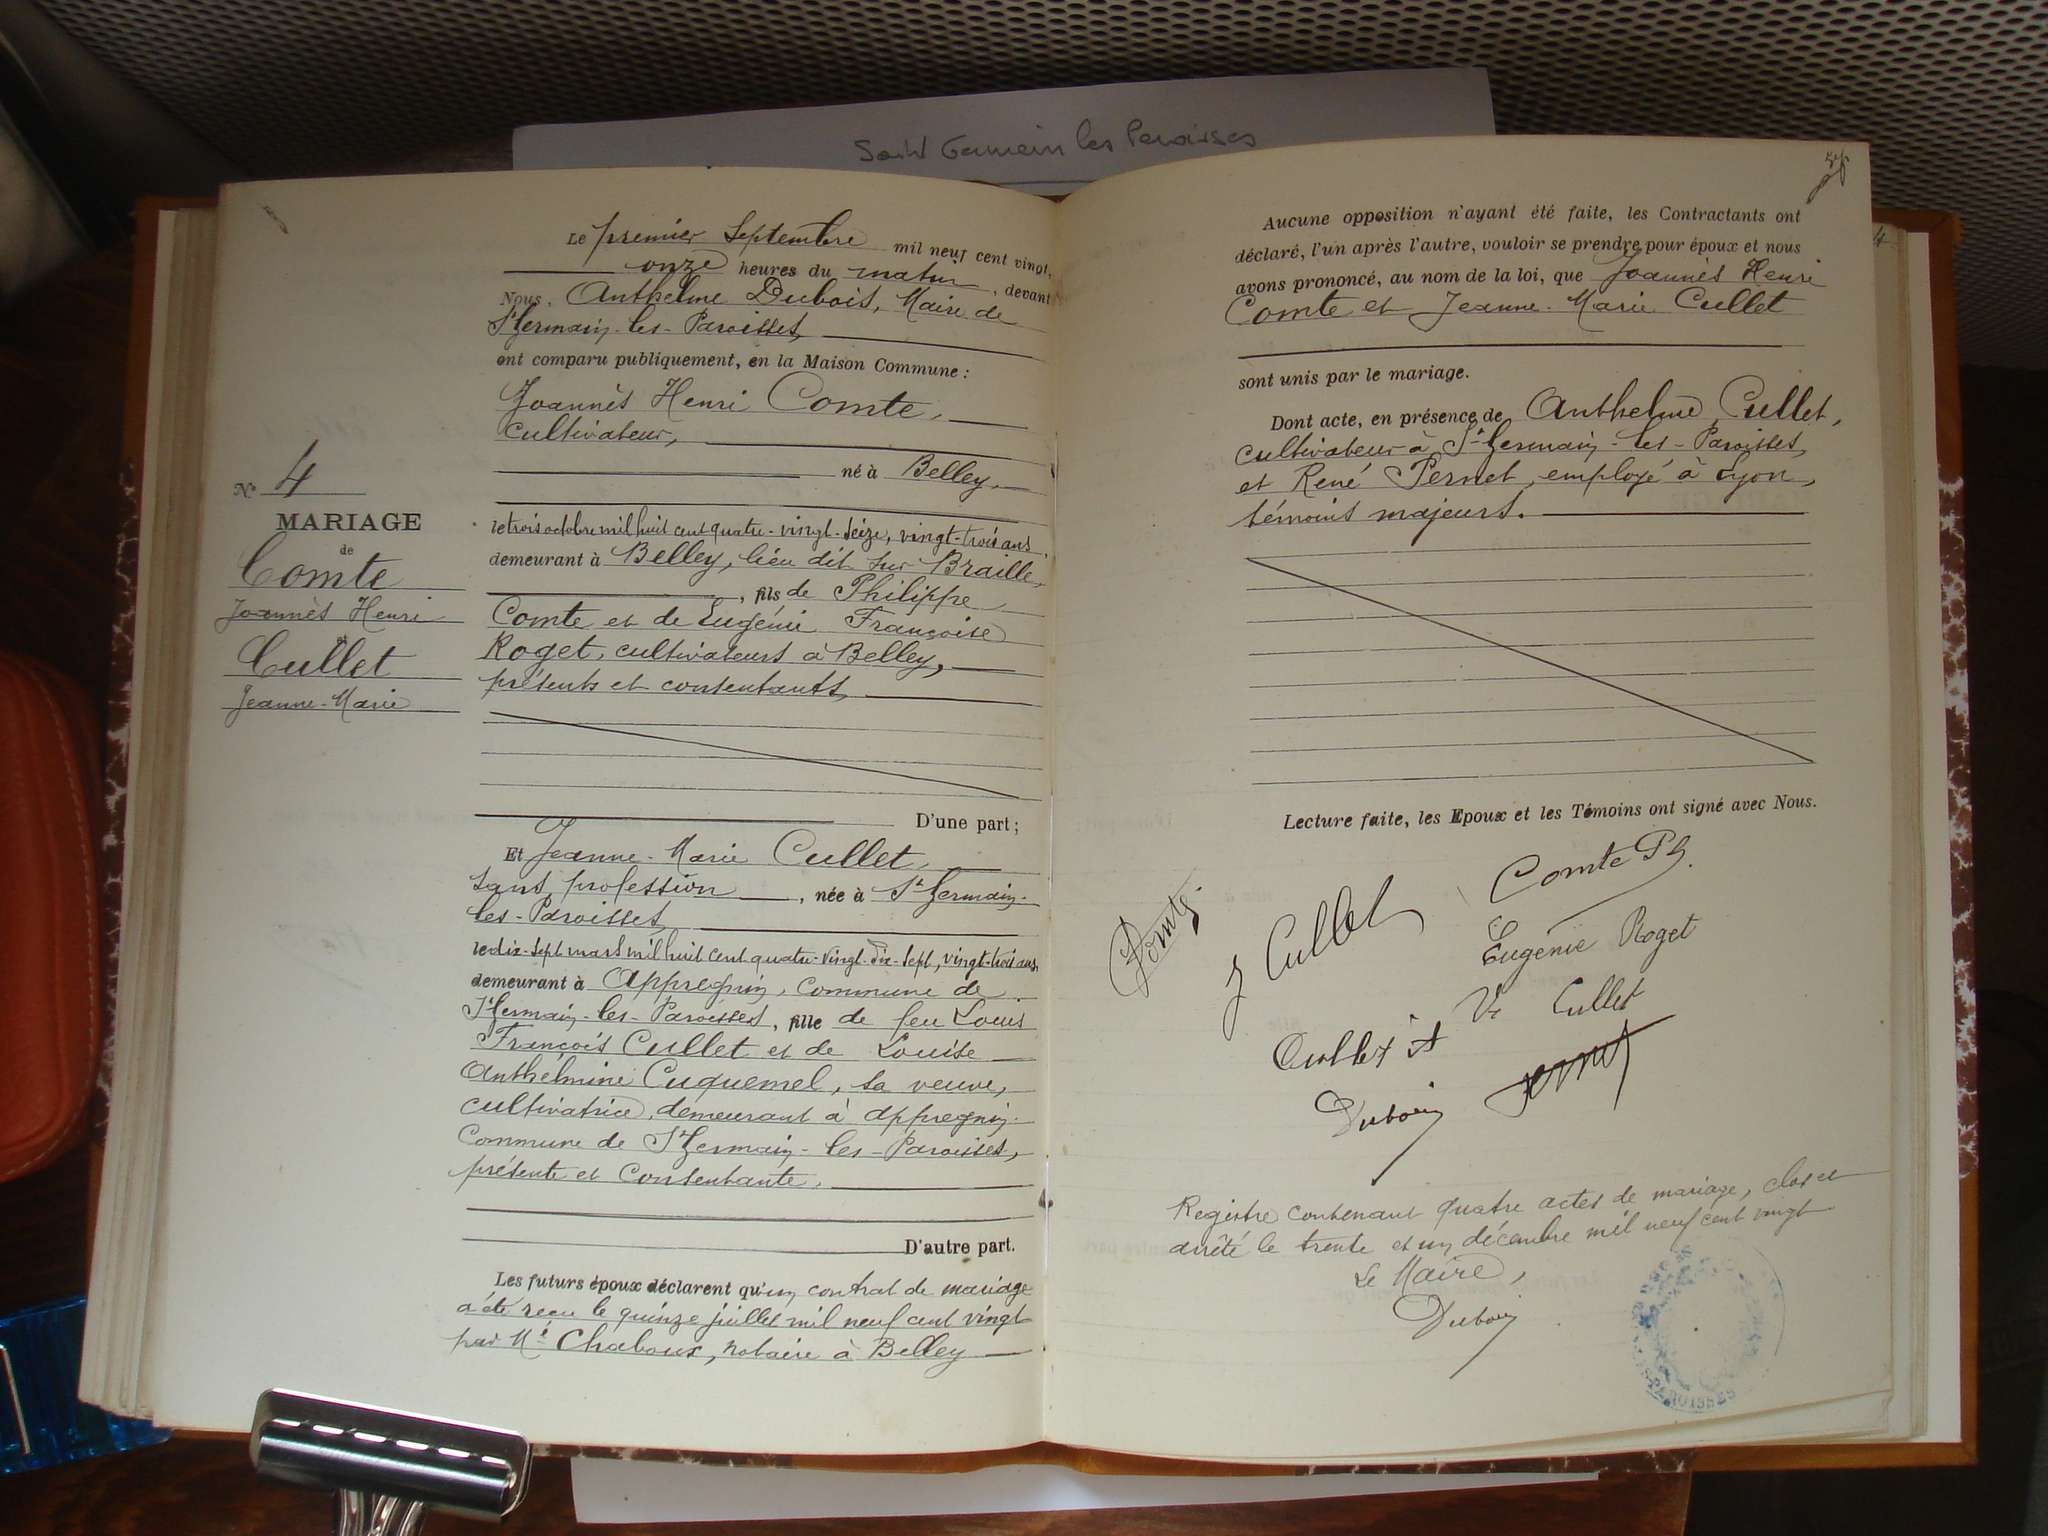 Saint Germain les Paroisses
Le premier Septembre mil neuf cent vingt,
onze heures du matin, devant
Nous, Anthelme Dubois, Maire de
St Germain-les-Paroisses,
ont comparu publiquement, en la Maison Commune :
Joannès Henri Comte,
cultivateur,
né à Belley,
le trois octobre mil huit cent quatre-vingt-seize, vingt-trois ans,
demeurant à Belley, lieu dit sur Braille,
, fils de Philippe
Comte et de Eugénie Françoise
Roget, cultivateurs à Belley,
présents et consentants,
D'une part ;
Et Jeanne-Marie Cullet,
sans profession, née à St Germain-
les-Paroisses,
le dix-sept mars mil huit cent quatre-vingt-dix-sept, vingt-trois ans,
demeurant à Appregnin, commune de
St Germain-les-Paroisses, fille de feu Louis
François Cullet et de Louise
Anthelmine Cuquemel, sa veuve,
cultivatrice, demeurant à Appregnin
Commune de St Germain-les-Paroisses,
présente et Consentante,
D'autre part.
Les futurs époux déclarent qu'un contrat de mariage
a été reçu le quinze juillet mil neuf cent vingt
par Me Chaboux, notaire à Belley
No 4
MARIAGE
de
Comte
Joannès Henri
et
Cullet
Jeanne-Marie
Aucune opposition n'ayant été faite, les Contractants ont
déclaré, l'un après l'autre, vouloir se prendre pour époux et nous
avons prononcé, au nom de la loi, que Joannès Henri
Comte et Jeanne-Marie Cullet
sont unis par le mariage.
Dont acte, en présence de Anthelme Cullet,
cultivateur à St Germain-les-Paroisses,
et René Pernet, employé à Lyon,
témoins majeurs.
Lecture faite, les Epoux et les Témoins ont signé avec Nous.
Comte Ph.
Comte
J Cullet
Eugénie Roget
Ve Cullet
Cullet A
Pernet
Dubois
Registre contenant quatre actes de mariage, clos et
arrêté le trente et un décembre mil neuf cent vingt
Le Maire,
Dubois